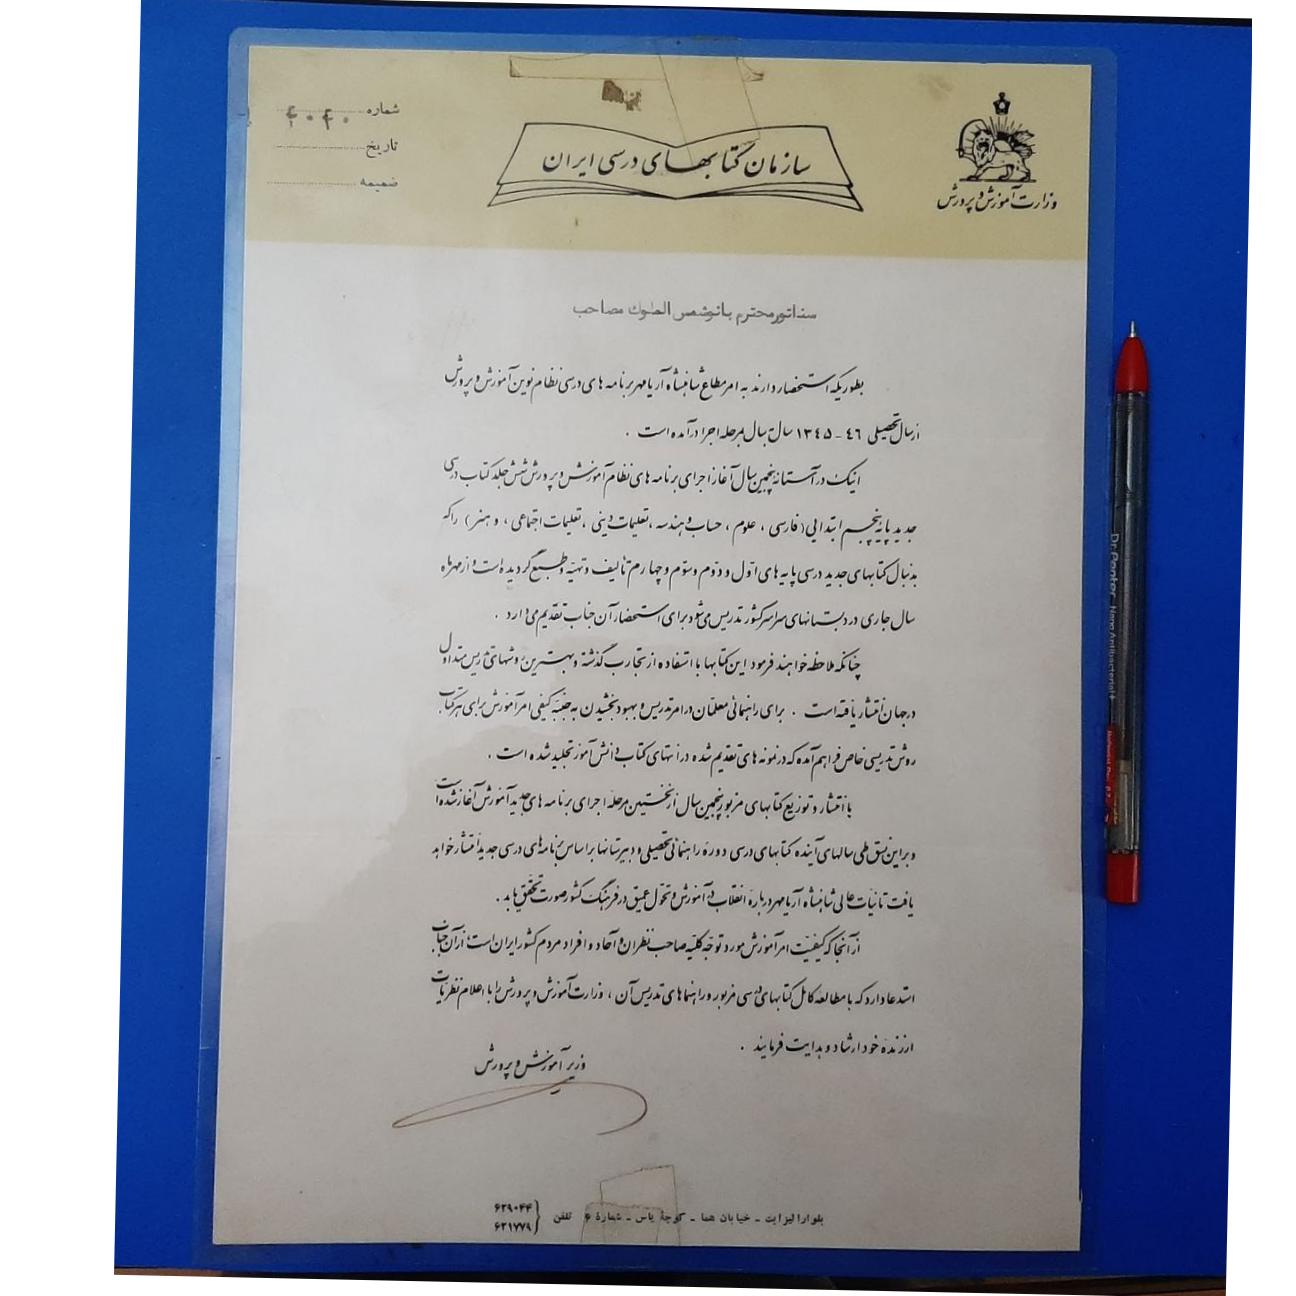 شماره ۴۰۴۰
تاریخ
ضمیمه
سازمان کتابهای درسی ایران
وزارت آموزش و پرورش
سناتور محترم بانو شمس الملوک مصاحب
بطوریکه استحضار دارند به امر مطاع شاهنشاه آریامهر برنامه های درسی نظام نوین آموزش و پرورش
از سال تحصیلی ۴۶ - ۱۳۴۵ سال بسال بمرحله اجرا درآمده است .
اینک در آستانه پنجمین سال آغاز اجرای برنامه های نظام آموزش و پرورش شش جلد کتاب درسی
جدید پایه پنجم ابتدایی ( فارسی ، علوم ، حساب و هندسه ، تعلیمات دینی ، تعلیمات اجتماعی ، و هنر ) را که
بدنبال کتابهای جدید درسی پایه های اول و دوم و سوم و چهارم تألیف و تهیه و طبع گردیده است و از مهرماه
سال جاری در دبستانهای سراسر کشور تدریس می شود برای استحضار آن جناب تقدیم می دارد .
چنانکه ملاحظه خواهند فرمود این کتابها با استفاده از تجارب گذشته و بهترین روشهای تدریس متداول
در جهان انتشار یافته است . برای راهنمائی معلمان در امر تدریس و بهبود بخشیدن به جنبه کیفی امر آموزش برای هر کتاب
روش تدریسی خاص فراهم آمده که در نمونه های تقدیم شده در انتهای کتاب دانش آموز تجلید شده است .
با انتشار و توزیع کتابهای مزبور پنجمین سال از نخستین مرحله اجرای برنامه های جدید آموزش آغاز شده است
و بر این نسق طی سالهای آینده کتابهای درسی دوره راهنمائی تحصیلی و دبیرستانها بر اساس برنامه های درسی جدید انتشار خواهد
یافت تا نیات عالی شاهنشاه آریامهر درباره انقلاب در آموزش و تحول عمیق در فرهنگ کشور صورت تحقق یابد .
از آنجا که کیفیت امر آموزش مورد توجه کلیه صاحب نظران و آحاد و افراد مردم کشور ایران است از آن جناب
استدعا دارد که با مطالعه کامل کتابهای درسی مزبور و راهنماهای تدریس آن ، وزارت آموزش و پرورش را با اعلام نظریات
ارزنده خود ارشاد و هدایت فرمایند .
وزیر آموزش و پرورش
بلوار الیزابت - خیابان هما - کوچه یاس - شماره ۶ تلفن
۶۲۹۰۴۴
۶۲۱۷۷۹